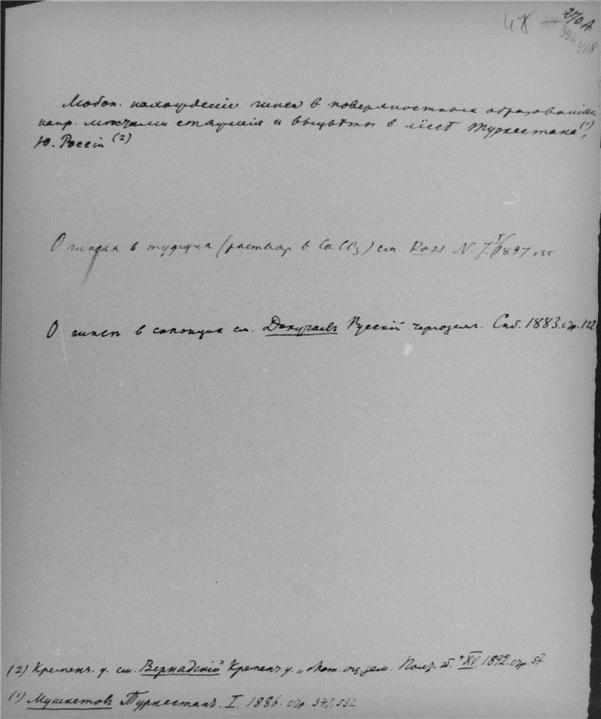 48 270А
408
Любоп. нахождение гипса в поверхностных образованиях
напр. стяжения и выцветы в лёссе Туркестана (1),
Ю. России (2)
О гипсах в туффах (раствор в CaCl2) см. Ross N. J. 1897
О гипсе в солонцах см. Докучаев Русский чернозем. Спб. 1883. стр. 122
(2) Кременч. у. см. Вернадский Кременч. у. „Мат. оц. зем. Полт. г." XV. 1892. стр. 57
(1) Мушкетов Туркестан. I. 1886. стр. 347, 552